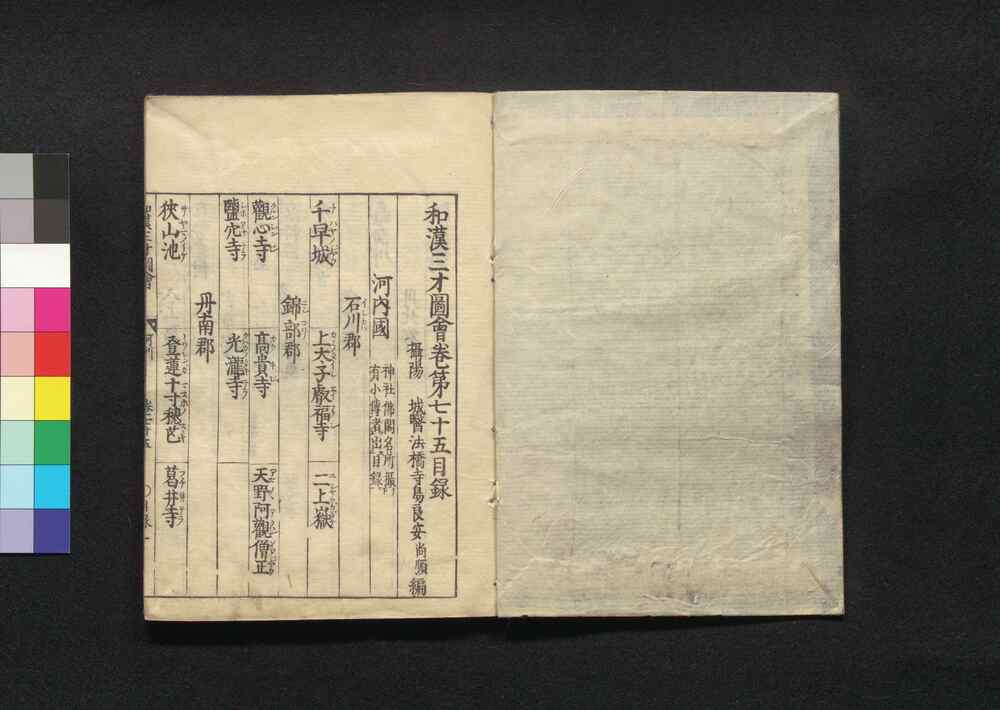 和漢三才圖會巻第七十五目録
攝陽 城醫法橋寺島良安尚順編
河内國 神社佛閣名所
有小傳者出目録
石川郡
千早城 上太子叡福寺 二上嶽
錦部郡
觀心寺 高貴寺 天野阿觀僧正
鹽穴寺 光瀧寺
丹南郡
狭山池 登蓮十寸穂芒 葛井寺
和漢三才圖會 河州